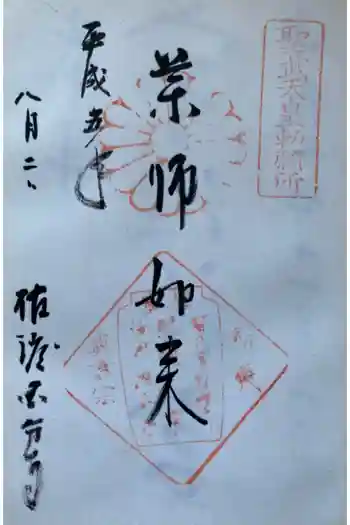 聖武天皇勅願所
薬師如来
平成五年
八月二、
佐渡国分寺